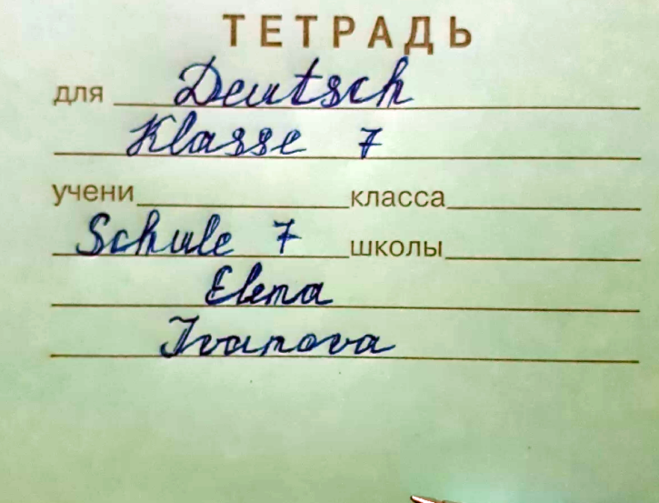 ТЕТРАДЬ
для Deutsch
Klasse 7
учени класса
Schule 7 школы
Elena
Ivanova